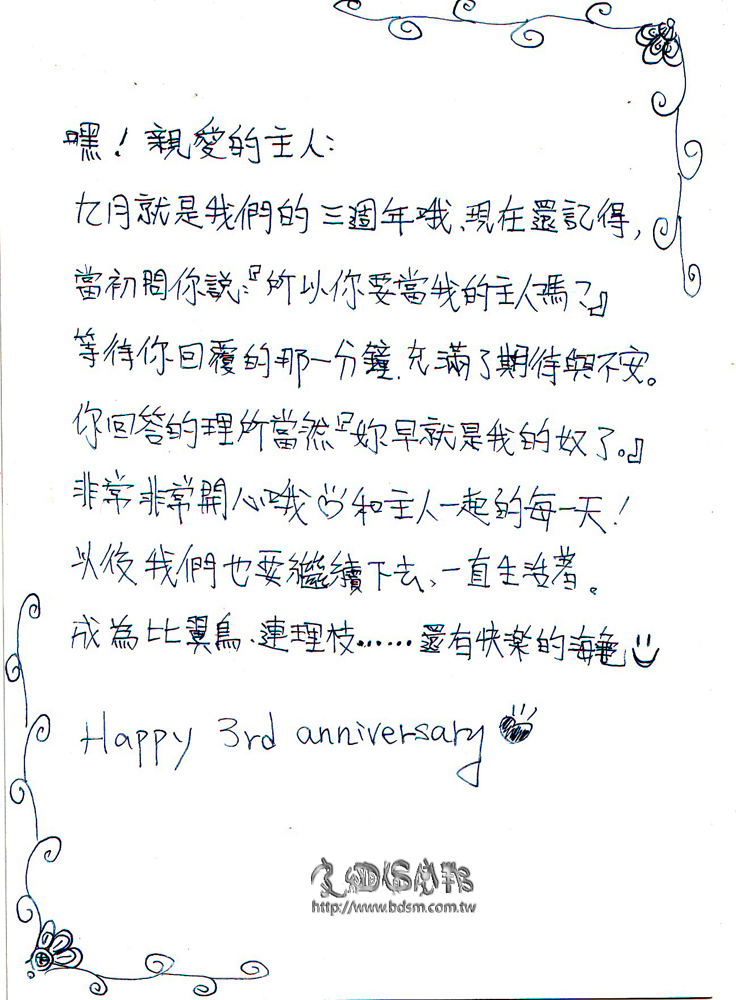 嘿！親愛的主人：
九月就是我們的三週年哦、現在還記得，
當初問你說：『所以你要當我的主人嗎？』
等待你回覆的那一分鐘、充滿了期待與不安。
你回答的理所當然『妳早就是我的奴了。』
非常非常開心哦♡和主人一起的每一天！
以後我們也要繼續下去、一直生活著。
成為比翼鳥、連理枝……還有快樂的海龜
Happy 3rd anniversary
http://www.bdsm.com.tw